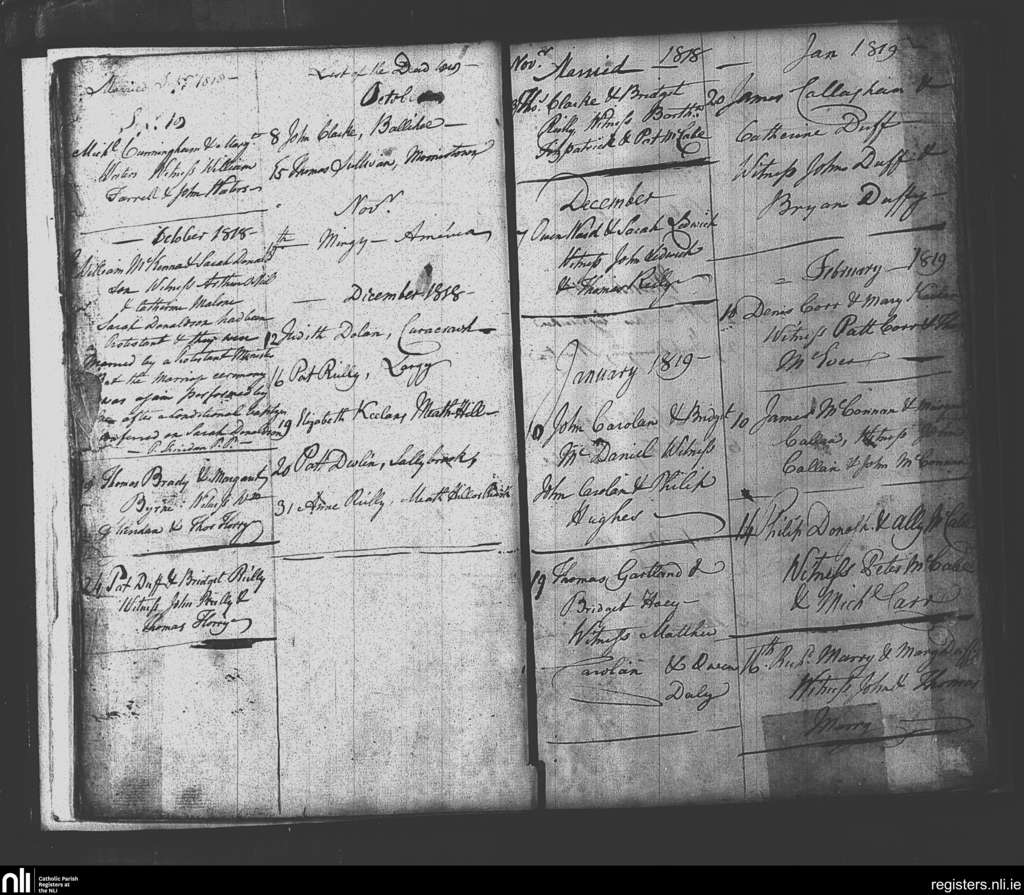 Married 1818
Mich.l Cunningham & Mary
Waters Witness William
Farrell & John Waters
October 1818
William McKenna & Sarah Donald
son Witness Arthur
& Catherine Malone
Sarah Donaldson had been
Protestant & they were
Married by a Protestant Minister
that the Marriage ceremony
was again performed by
me after a Conditional Baptism
conferred on Sarah Donaldson
P. P.P.
Thomas Brady & Margaret
Byrne Witness Wm
Sheridan & Thos Florry
24 Pat Duff & Bridget Reilly
Witness John Reilly &
Thomas Florry
List of the Dead 1819
October
8 John Clarke, Ballihoe
15 Thomas Sullivan, Morristown
Nov.r
th Mingy America
December 1818
12 Judith Dolan,
16 Pat Reilly, Largy
19 Elizabeth Keelan, Meath Hill
20 Patt Devlin, Sallybrook
31 Anne Reilly, Meath Hill
Nov.r Married 1818
Tho.s Clarke & Bridget
Reilly Witness Barth.w
Fitzpatrick & Pat McCabe
December
7 Owen Ward & Sarah Ledwich
Witness John Ledwich
& Thomas Reilly
January 1819
10 John Carolan & Bridget
McDaniel Witness
John Carolan & Philip
Hughes
19 Thomas Gartland &
Bridget Hoey
Witness Matthew
Carolan & Owen
Daly
Jan 1819
20 James Callaghan &
Catherine Duff
Witness John Duff &
Bryan Duffy
February 1819
10 Denis Corr & Mary
Witness Patt Corr &
McEver
10 James McConnan &
Callan, Witness
Callan & John McConnan
14 Philip & Ally McCabe
Witness Peter McCabe
& Mich.l Carr
16th Rich.d Marry & Mary Duffy
Witness John & Thomas
Marry
nli
Catholic Parish
Registers at
the NLI
registers.nli.ie